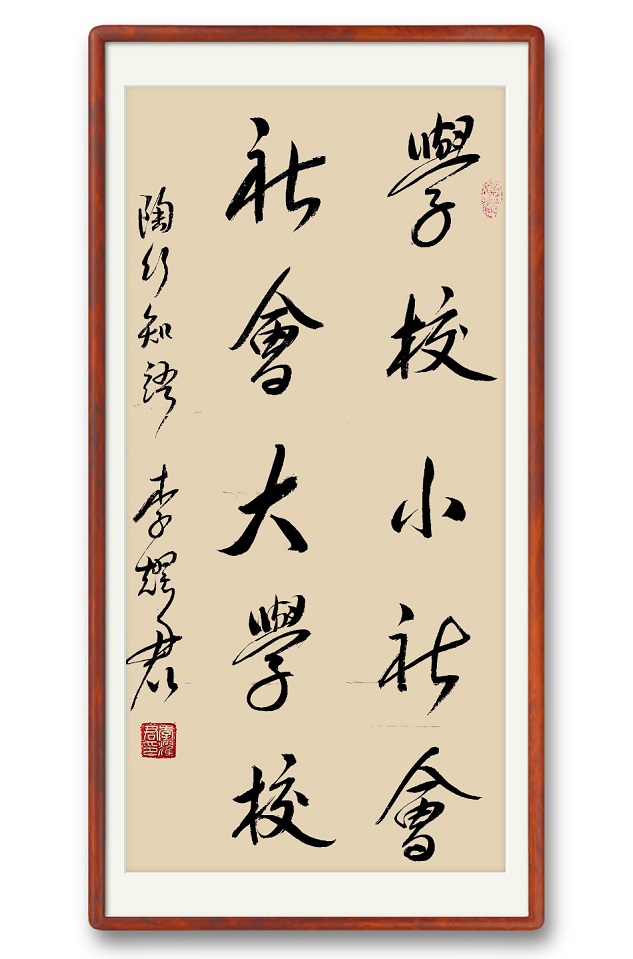 學校小社會
社會大學校
陶行知語 李耀君